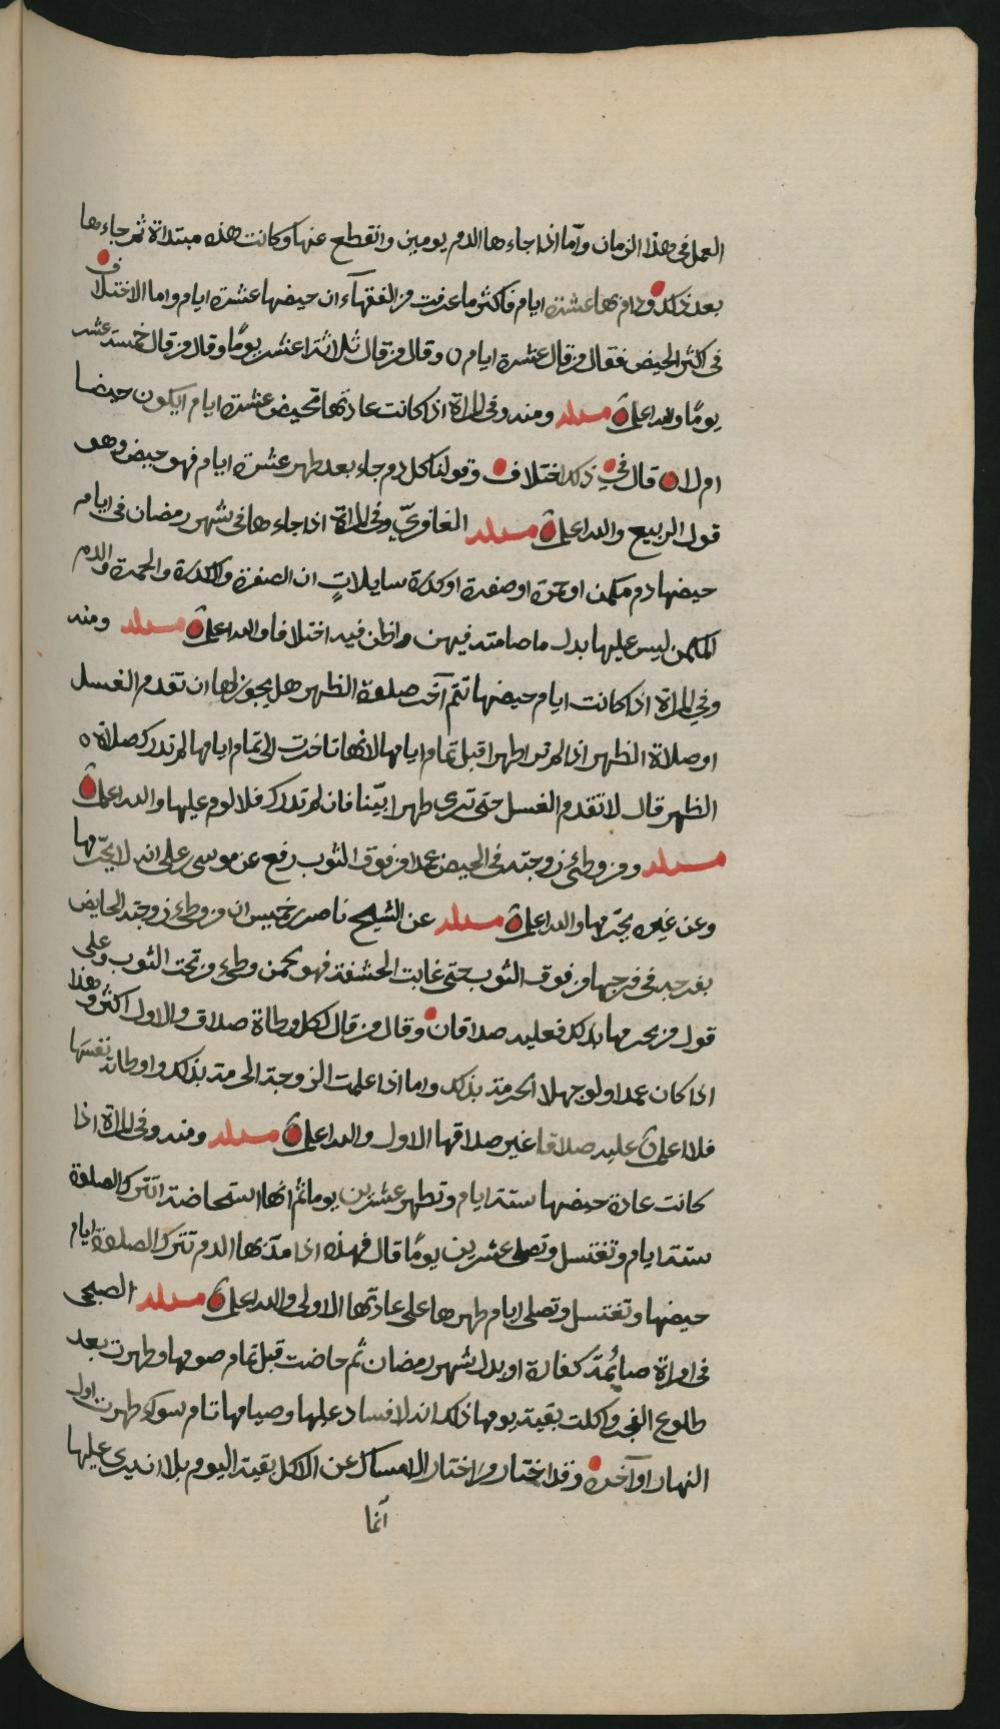 العمل في هذا الزمان وأما اذا جاءها الدم يومين وانقطع عنها وكانت هذه مبتداة ثم جاءها
بعد ذلك ودام بها عشرة ايام فاكثر ما عرفت من الفقهآء ان حيضها عشرة ايام واما الاختلاف
في اكثر الحيض فقال من قال عشرة ايام ٥ وقال من قال ثلاثة اعشر يومًا وقال من قال خمسة عشر
يومًا والله اعلم مسئلة ومنه وفي المراة اذا كانت عادتها تحيض عشرة ايام ايكون حيضا
ام لا ٥ قال في ذلك اختلاف وقولنا كل دم جاء بعد طهر عشرة ايام فهو حيض وهو
قول الربيع والله اعلم مسئلة الغافريّ وفي المراة اذا جاءها في شهر رمضان في ايام
حيضها دم مكمن او حمرة او صفرة او كدرة سايلات ان الصفرة والكدرة والحمرة والدم
المكمن ليس عليها بدل ما صامته فيهن واظن فيه اختلافا والله اعلم مسئلة ومنه
وفي المراة اذا كانت ايام حيضها تتم آخر صلوة الظهر هل يجوز لها ان تقدم الغسل
او صلاة الظهر اذا لم تر اطهرا قبل تمام ايامها لانها تاخرت الى تمام ايامها لم تدرك صلاة ٥
الظهر قال لا تقدم الغسل حتى ترى طهرا بيّنا فان لم تدرك فلا لوم عليها والله اعلم
مسئلة ومن وطئ زوجته في الحيض عمدا من فوق الثوب رفع عن موسى بن علي انه لا يحرّمها
وعن غيره يحرمها والله اعلم مسئلة عن الشيخ ناصر بن خميس ان من وطئ زوجته الحايض
بفرجه في فرجها من فوق الثوب حتى غابت الحشفة فهو كمن وطئ من تحت الثوب وعلى
قول من يحرمها بذلك فعليه صداقان وقال من قال لكل وطاة صداق والاول اكثر وهذا
اذا كان عمدا ولو جهلا لحرمة بذلك واما اذا علمت الزوجة الحرمة بذلك واوطاته نفسها
فلا اعلم عليه صداقا غير صداقها الاول والله اعلم مسئلة ومنه وفي المراة اذا
كانت عادة حيضها ستة ايام وتطهر عشرين يوما ثم انها استحاضت اتترك الصلوة
ستة ايام وتغتسل وتصلي عشرين يومًا قال فهذه اذا مدّ بها الدم تترك الصلوة ايام
حيضها وتغتسل وتصلي ايام طهرها على عادتها الاولى والله اعلم مسئلة الصبحي
في امراة صائمة كفارة او بدل شهر رمضان ثم حاضت قبل تمام صومها وطهرت بعد
طلوع الفجر واكلت بقية يومها ذلك انه لا فساد عليها وصيامها تام سواء طهرت اول
النهار او آخره وقد اختار من اختار الامساك عن الاكل بقية اليوم بلا ان يرى عليها
انما